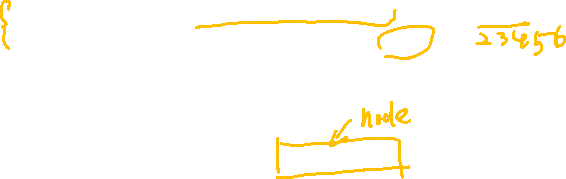 {
23456
node